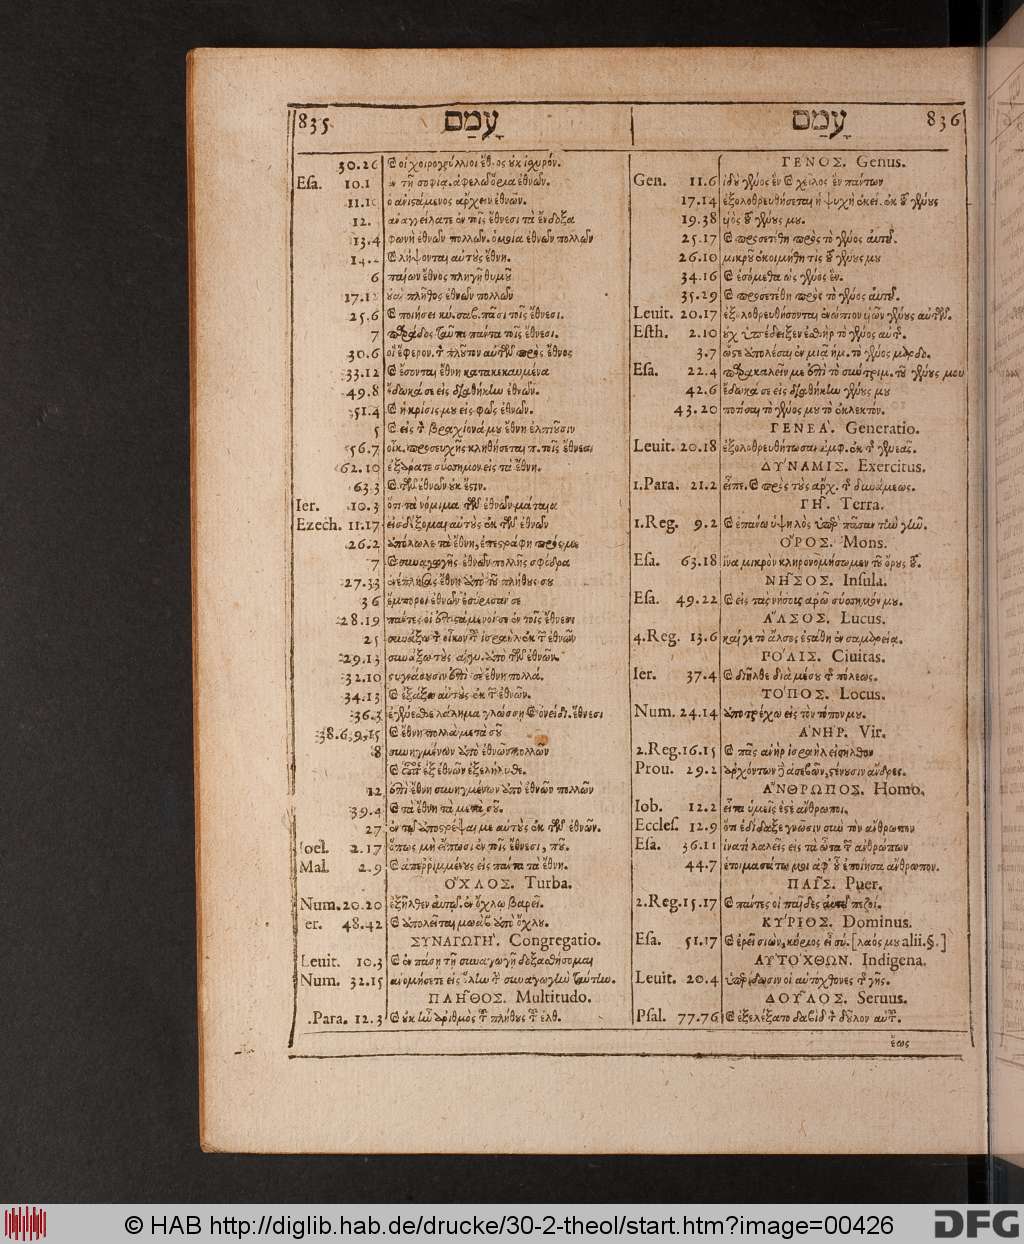 835 עָמַם
30.26 οἱ χοιρογρύλλιοι ἔθνος οὐκ ἰσχυρόν.
Esa. 10.1 ἐν τῇ σοφίᾳ. ἀφελῶ ὅρια ἐθνῶν.
ὁ ἀνιστάμενος ἄρχειν ἐθνῶν.
12. ἀναγγείλατε ἐν τοῖς ἔθνεσι τὰ ἔνδοξα
13.4 φωνὴ ἐθνῶν πολλῶν. ὁμοία ἐθνῶν πολλῶν
14.2 λήψονται αὐτοὺς ἔθνη.
6 παίων ἔθνος πληγῇ θυμοῦ
17.12 πλῆθος ἐθνῶν πολλῶν
25.6 ποιήσει κύ. σαβ. πᾶσι τοῖς ἔθνεσι.
7 παράδος ταῦτα πάντα τοῖς ἔθνεσι.
30.6 οἳ ἔφερον τὸν πλοῦτον αὐτῶν πρὸς ἔθνος
33.12 ἔσονται ἔθνη κατακεκαυμένα
49.8 ἔδωκά σε εἰς διαθήκην ἐθνῶν.
51.4 ἡ κρίσις μου εἰς φῶς ἐθνῶν.
5 εἰς τὸν βραχίονά μου ἔθνη ἐλπιοῦσιν
56.7 οἶκ. προσευχῆς κληθήσεται π. τοῖς ἔθνεσι
62.10 ἐξάρατε σύσσημον εἰς τὰ ἔθνη.
63.3 τῶν ἐθνῶν οὐκ ἔστιν.
Ier. 10.3 ὅτι τὰ νόμιμα τῶν ἐθνῶν μάταια
Ezech. 11.17 εἰσδέξομαι αὐτοὺς ἐκ τῶν ἐθνῶν
26.2 ἀπόλωλε τὰ ἔθνη, ἐπεστράφη πρός με
7 συναγωγῆς ἐθνῶν πολλῆς σφόδρα
27.33 ἐνέπλησας ἔθνη ἀπὸ τοῦ πλήθους σου
36 ἔμποροι ἐθνῶν ἐσύρισάν σε
28.19 πάντες οἱ ἐπιστάμενοί σε ἐν τοῖς ἔθνεσι
25 συνάξω τὸν οἶκον τοῦ ἰσραὴλ ἐκ τῶν ἐθνῶν
29.13 συνάξω τοὺς αἰγυ. ἀπὸ τῶν ἐθνῶν.
32.10 στυγνάσουσιν ἐπὶ σὲ ἔθνη πολλά.
34.13 ἐξάξω αὐτοὺς ἐκ τῶν ἐθνῶν.
36.3 λάλημα γλώσσῃ ὀνείδι. ἔθνεσι
38.6,9,15 ἔθνη πολλὰ μετὰ σοῦ
8 συνηγμένων ἀπὸ ἐθνῶν πολλῶν
ἐξ ἐθνῶν ἐξελήλυθε.
12 ἐπὶ ἔθνη συνηγμένων ἀπὸ ἐθνῶν πολλῶν
39.4 τὰ ἔθνη τὰ μετὰ σοῦ.
27 ἐν τῷ ἀποστρέψαι με αὐτοὺς ἐκ τῶν ἐθνῶν.
Ioel. 2.17 ὅπως μὴ εἴπωσι ἐν τοῖς ἔθνεσι, ποῦ.
Mal. 2.9 ἀπερριμμένους εἰς πάντα τὰ ἔθνη.
ΟΧΛΟΣ. Turba.
Num. 20.20 ἐξῆλθεν αὐτῷ. ἐν ὄχλῳ βαρεῖ.
er. 48.42 ἀπολεῖται μωὰβ ἀπὸ ὄχλου.
ΣΥΝΑΓΩΓΗ. Congregatio.
Leuit. 10.3 ἐν πάσῃ τῇ συναγωγῇ δοξασθήσομαι
Num. 32.15 ἀνομήσετε εἰς ὅλην τὴν συναγωγὴν ταύτην.
ΠΛΗΘΟΣ. Multitudo.
.Para. 12.3 οὐκ ἦν ἀριθμὸς τοῦ πλήθους τοῦ ἐλθ.
עָמַם 836
ΓΕΝΟΣ. Genus.
Gen. 11.6 ἰδοὺ γένος ἓν χεῖλος ἓν πάντων
17.14 ἐξολοθρευθήσεται ἡ ψυχὴ ἐκεί. ἐκ τοῦ γένους
19.38 υἱὸς τοῦ γένους μου.
25.17 προσετέθη πρὸς τὸ γένος αὐτοῦ.
26.10 μικροῦ ἐκοιμήθη τὶς τοῦ γένους μου
34.16 ἐσόμεθα ὡς γένος ἕν.
35.29 προσετέθη πρὸς τὸ γένος αὐτοῦ.
Leuit. 20.17 ἐξολοθρευθήσονται ἐνώπιον υἱῶν γένους αὐτῶν.
Esth. 2.10 οὐχ ὑπέδειξεν ἐσθὴρ τὸ γένος αὐτῆς.
3.7 ὥστε ἀπολέσαι ἐν μιᾷ ἡμ. τὸ γένος μαρδο.
Esa. 22.4 παρακαλεῖν με ἐπὶ τὸ σύντριμ. τοῦ γένους μου
42.6 ἔδωκά σε εἰς διαθήκην γένους μου
43.20 ποτίσαι τὸ γένος μου τὸ ἐκλεκτόν.
ΓΕΝΕΑ. Generatio.
Leuit. 20.18 ἐξολοθρευθήτωσαι ἀμφ. ἐκ τῆς γενεᾶς.
ΔΥΝΑΜΙΣ. Exercitus.
1.Para. 21.2 εἶπε. πρὸς τοὺς ἄρχ. τῆς δυνάμεως.
ΓΗ. Terra.
1.Reg. 9.2 ἐπάνω ὑψηλὸς ὑπὲρ πᾶσαν τὴν γῆν.
ΟΡΟΣ. Mons.
Esa. 63.18 ἵνα μικρὸν κληρονομήσωμεν τοῦ ὄρους τοῦ.
ΝΗΣΟΣ. Insula.
Esa. 49.22 εἰς τὰς νήσους ἀρῶ σύσσημόν μου.
ΑΛΣΟΣ. Lucus.
4.Reg. 13.6 καίγε τὸ ἄλσος ἐστάθη ἐν σαμαρείᾳ.
ΠΟΛΙΣ. Ciuitas.
Ier. 37.4 διῆλθε διὰ μέσου τῆς πόλεως.
ΤΟΠΟΣ. Locus.
Num. 24.14 ἀποτρέχω εἰς τὸν τόπον μου.
ΑΝΗΡ. Vir.
2.Reg. 16.15 πᾶς ἀνὴρ ἰσραὴλ εἰσῆλθον
Prou. 29.2 ἀρχόντων ἀσεβῶν, στένουσιν ἄνδρες.
ΑΝΘΡΩΠΟΣ. Homo.
Iob. 12.2 εἶτα ὑμεῖς ἐστὲ ἄνθρωποι.
Eccles. 12.9 ὅτι ἐδίδαξε γνῶσιν σὺν τὸν ἄνθρωπον
Esa. 36.11 ἱνατί λαλεῖς εἰς τὰ ὦτα τῶν ἀνθρώπων
44.7 ἑτοιμασάτω μοι ἀφ' οὗ ἐποίησα ἄνθρωπον.
ΠΑΙΣ. Puer.
2.Reg. 15.17 πάντες οἱ παῖδες αὐτοῦ πεζοί.
ΚΥΡΙΟΣ. Dominus.
Esa. 51.17 ἐρεῖ σιών, κύριος εἶ σύ. [λαός μου alii. §.]
ΑΥΤΟΧΘΩΝ. Indigena.
Leuit. 20.4 ὑπερίδωσιν οἱ αὐτόχθονες τῆς γῆς.
ΔΟΥΛΟΣ. Seruus.
Psal. 77.76 ἐξελέξατο δαβὶδ τὸν δοῦλον αὐτοῦ.
ἕως
© HAB http://diglib.hab.de/drucke/30-2-theol/start.htm?image=00426
DFG